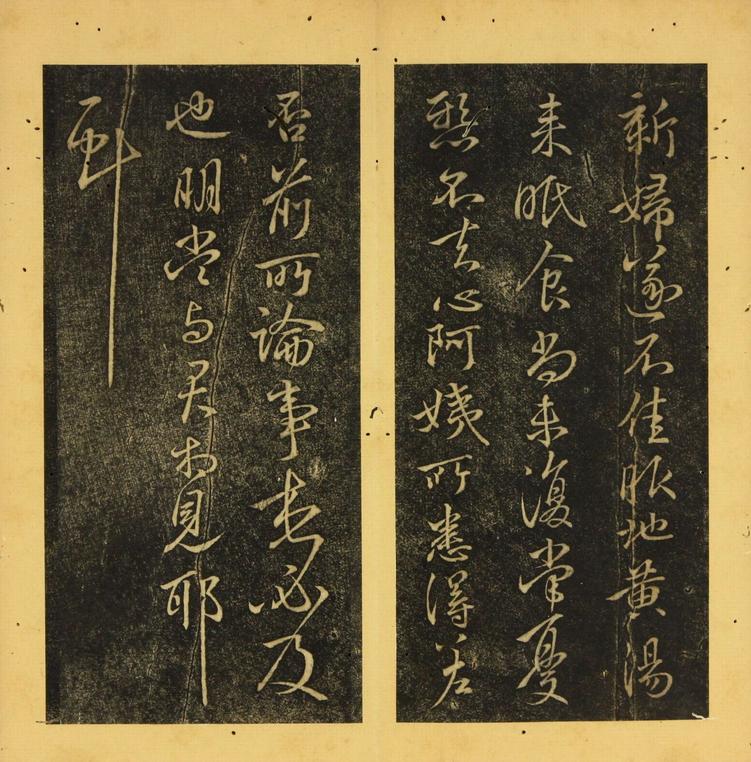 新婦遂不佳服地黃湯
来眠食尚未復常憂
懸不去心阿姨所患得差
否前所論事書必及
也明當与君相見耶